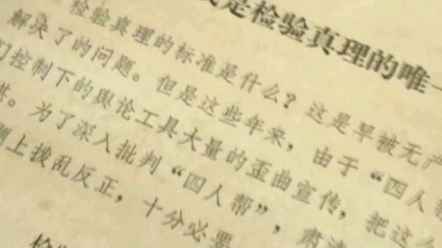 是检验真理的唯一
检验真理的标准是什么？这是早被无产
解决了的问题。但是这些年来，由于“四人帮
们控制下的舆论工具大量的歪曲宣传，把这
为了深入批判“四人帮”，肃
上拨乱反正，十分必要